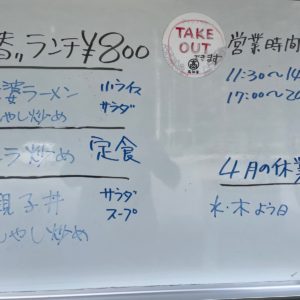 ランチ¥800
婆ラーメン 小ライス
やし炒め サラダ
ラ炒め 定食
親子丼 サラダ
もやし炒め スープ
TAKE
OUT
できます
営業時間
11:30～14
17:00～20
4月の休業
水・木よう日